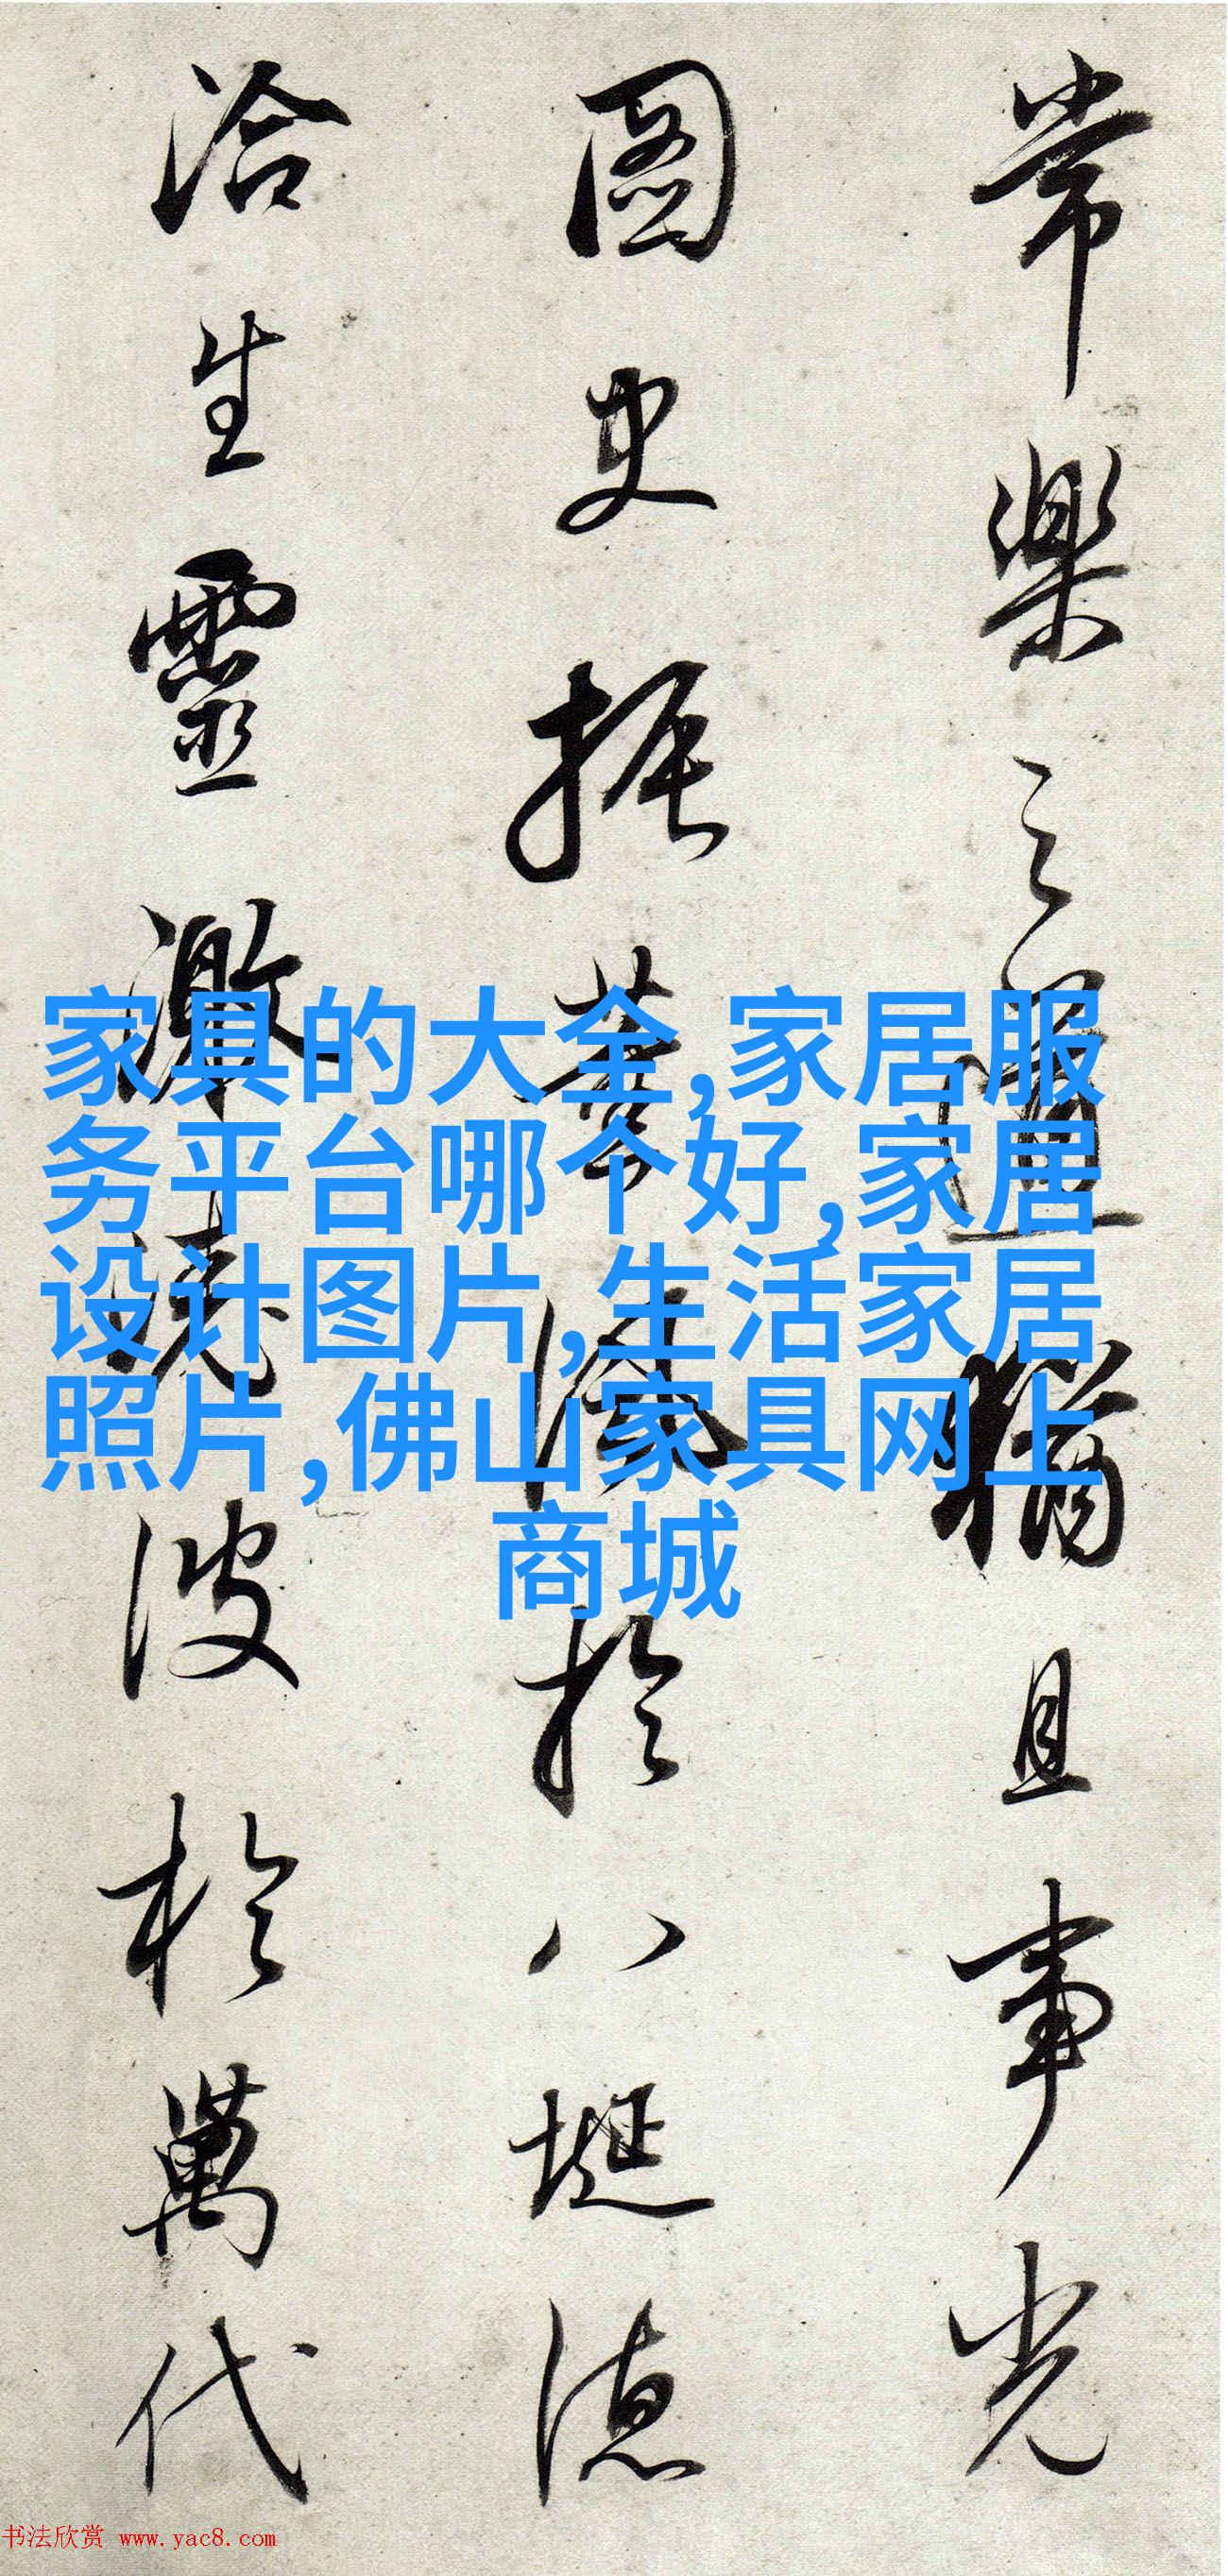 常樂之道猶且事光
圖史振華液於八埏德
洽生靈激洪波於萬代
家具的大全,家居服
务平台哪个好,家居
设计图片,生活家居
照片,佛山家具网上
商城
书法欣赏 www.yac8.com